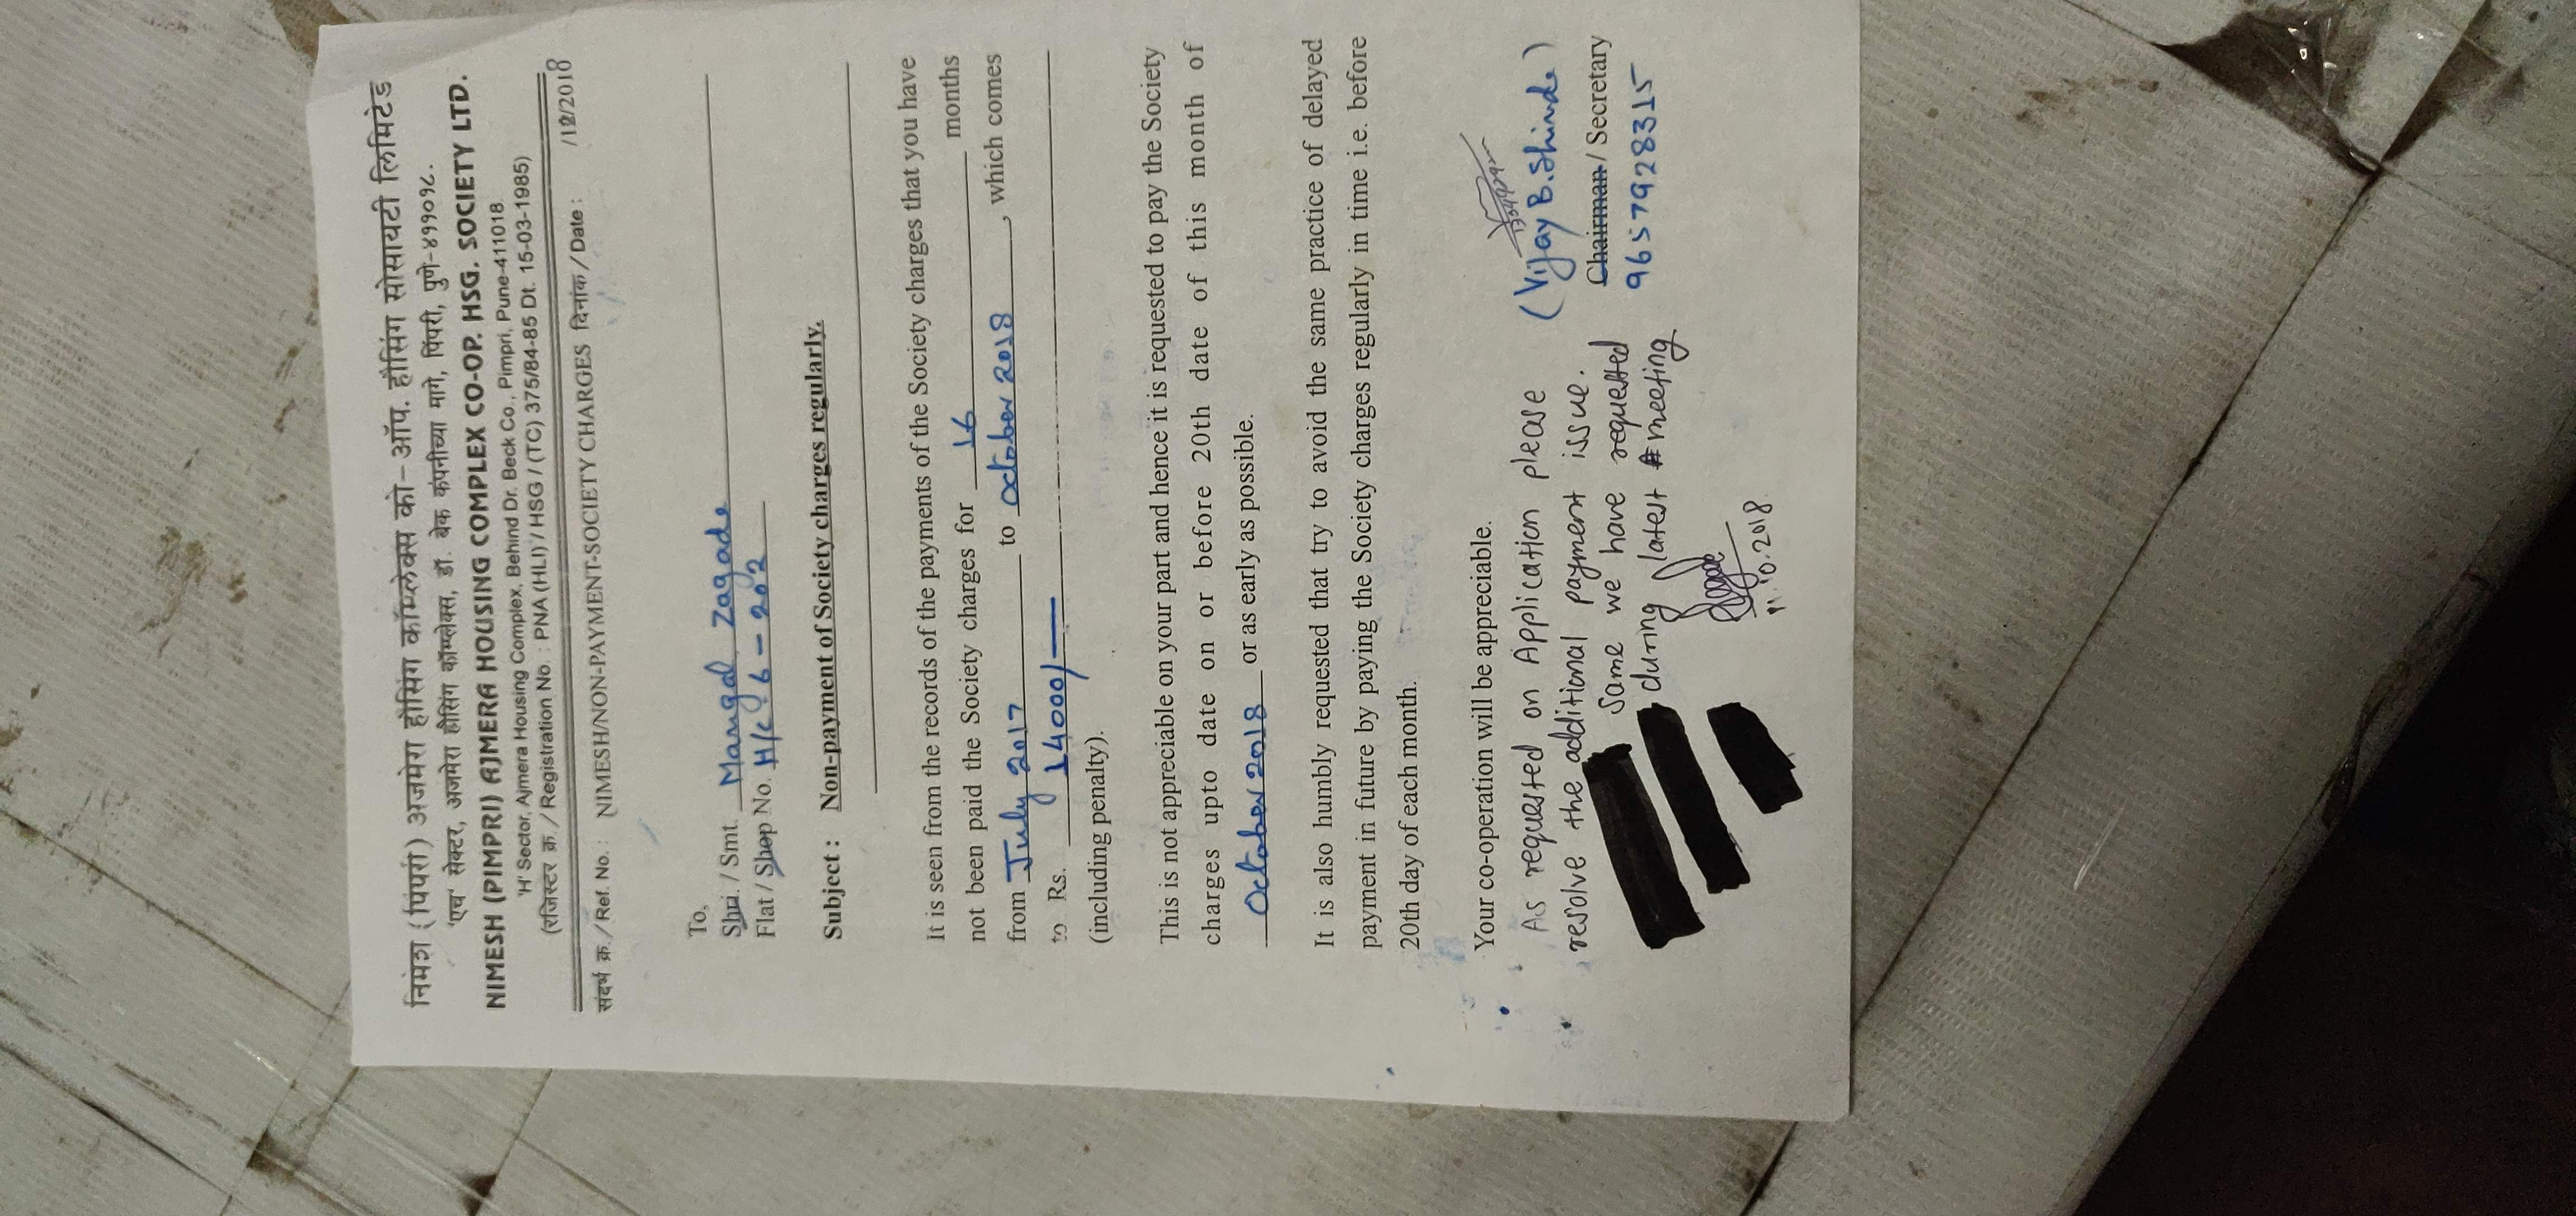 निमेश (पिंपरी) अजमेरा हौसिंग कॉम्प्लेक्स को-ऑप. हौसिंग सोसायटी लिमिटेड
'एच' सेक्टर, अजमेरा हौसिंग कॉम्प्लेक्स, डॉ. बेक कंपनीच्या मागे, पिंपरी, पुणे-४११०१८.
NIMESH (PIMPRI) AJMERA HOUSING COMPLEX CO-OP. HSG. SOCIETY LTD.
'H' Sector, Ajmera Housing Complex, Behind Dr. Beck Co., Pimpri, Pune-411018.
(रजिस्टर क्र. / Registration No. : PNA (HLI) / HSG / (TC) 375/84-85 Dt. 15-03-1985)
संदर्भ क्र. / Ref. No. : NIMESH/NON-PAYMENT-SOCIETY CHARGES दिनांक / Date : /2018
To,
Shri. / Smt. Mangal Zagade
Flat / Shop No. H/c-6-202
Subject : Non-payment of Society charges regularly.
It is seen from the records of the payments of the Society charges that you have
not been paid the Society charges for 16 months
from July 2017 to October 2018, which comes
to Rs. 14000/-
(including penalty).
This is not appreciable on your part and hence it is requested to pay the Society
charges upto date on or before 20th date of this month of
October 2018 or as early as possible.
It is also humbly requested that try to avoid the same practice of delayed
payment in future by paying the Society charges regularly in time i.e. before
20th day of each month.
Your co-operation will be appreciable.
As requested on Application please
resolve the additional payment issue.
Same we have requested
during latest meeting
11.10.2018
(Vijay B. Shinde)
Chairman / Secretary
9657928315